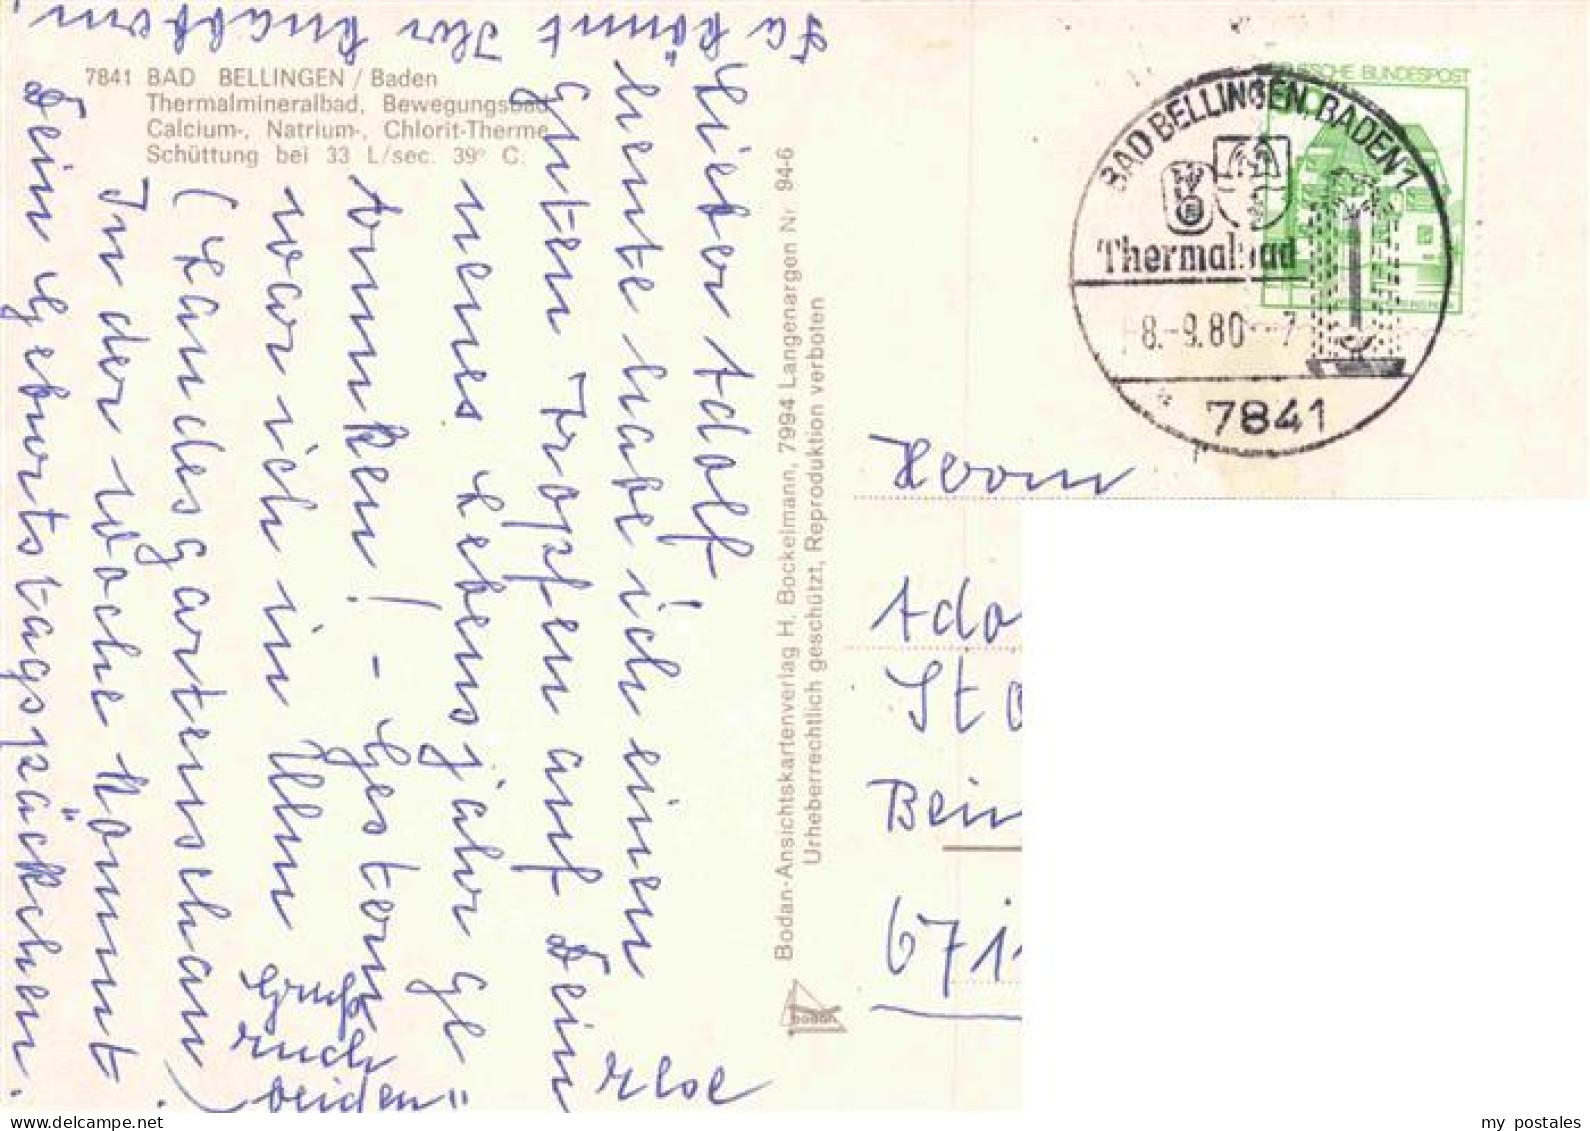 7841 BAD BELLINGEN / Baden
Thermalmineralbad, Bewegungsbad
Calcium-, Natrium-, Chlorit-Therme
Schüttung bei 33 L/sec. 39° C.
Lieber Adolf,
heute habe ich einen
guten Tropfen auf Dein
neues Lebensjahr ge=
trunken! - Gestern
war ich in Ulm
(Landesgartenschau)
In der Woche kommt
Dein Geburtstagspäckchen.
Da könnt Ihr knabbern.
Gruß
Euch
beiden
Bodan-Ansichtskartenverlag H. Bockelmann, 7994 Langenargen Nr. 94-6
Urheberrechtlich geschützt, Reproduktion verboten
bodan
DEUTSCHE BUNDESPOST
BAD BELLINGEN, BADEN 1
Thermalbad
8.-9.80--7
7841
Herrn
Ado
St
Bein
671
my postales